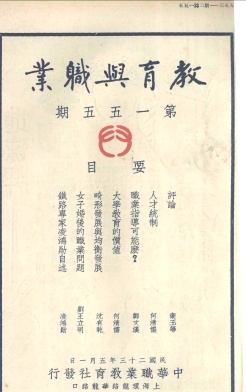 教育與職業
第一五五期
要目
評論
人才統制 何清儒
職業指導可能麼？ 鄭文漢
大學教育的價值 何清儒
畸形發展與均衡發展 沈有乾
女子婚後的職業問題 劉王立明
鐵路專家凌鴻勛自述 凌鴻勛
民國二十三年五月一日
中華職業教育社發行
上海環龍路華龍路口